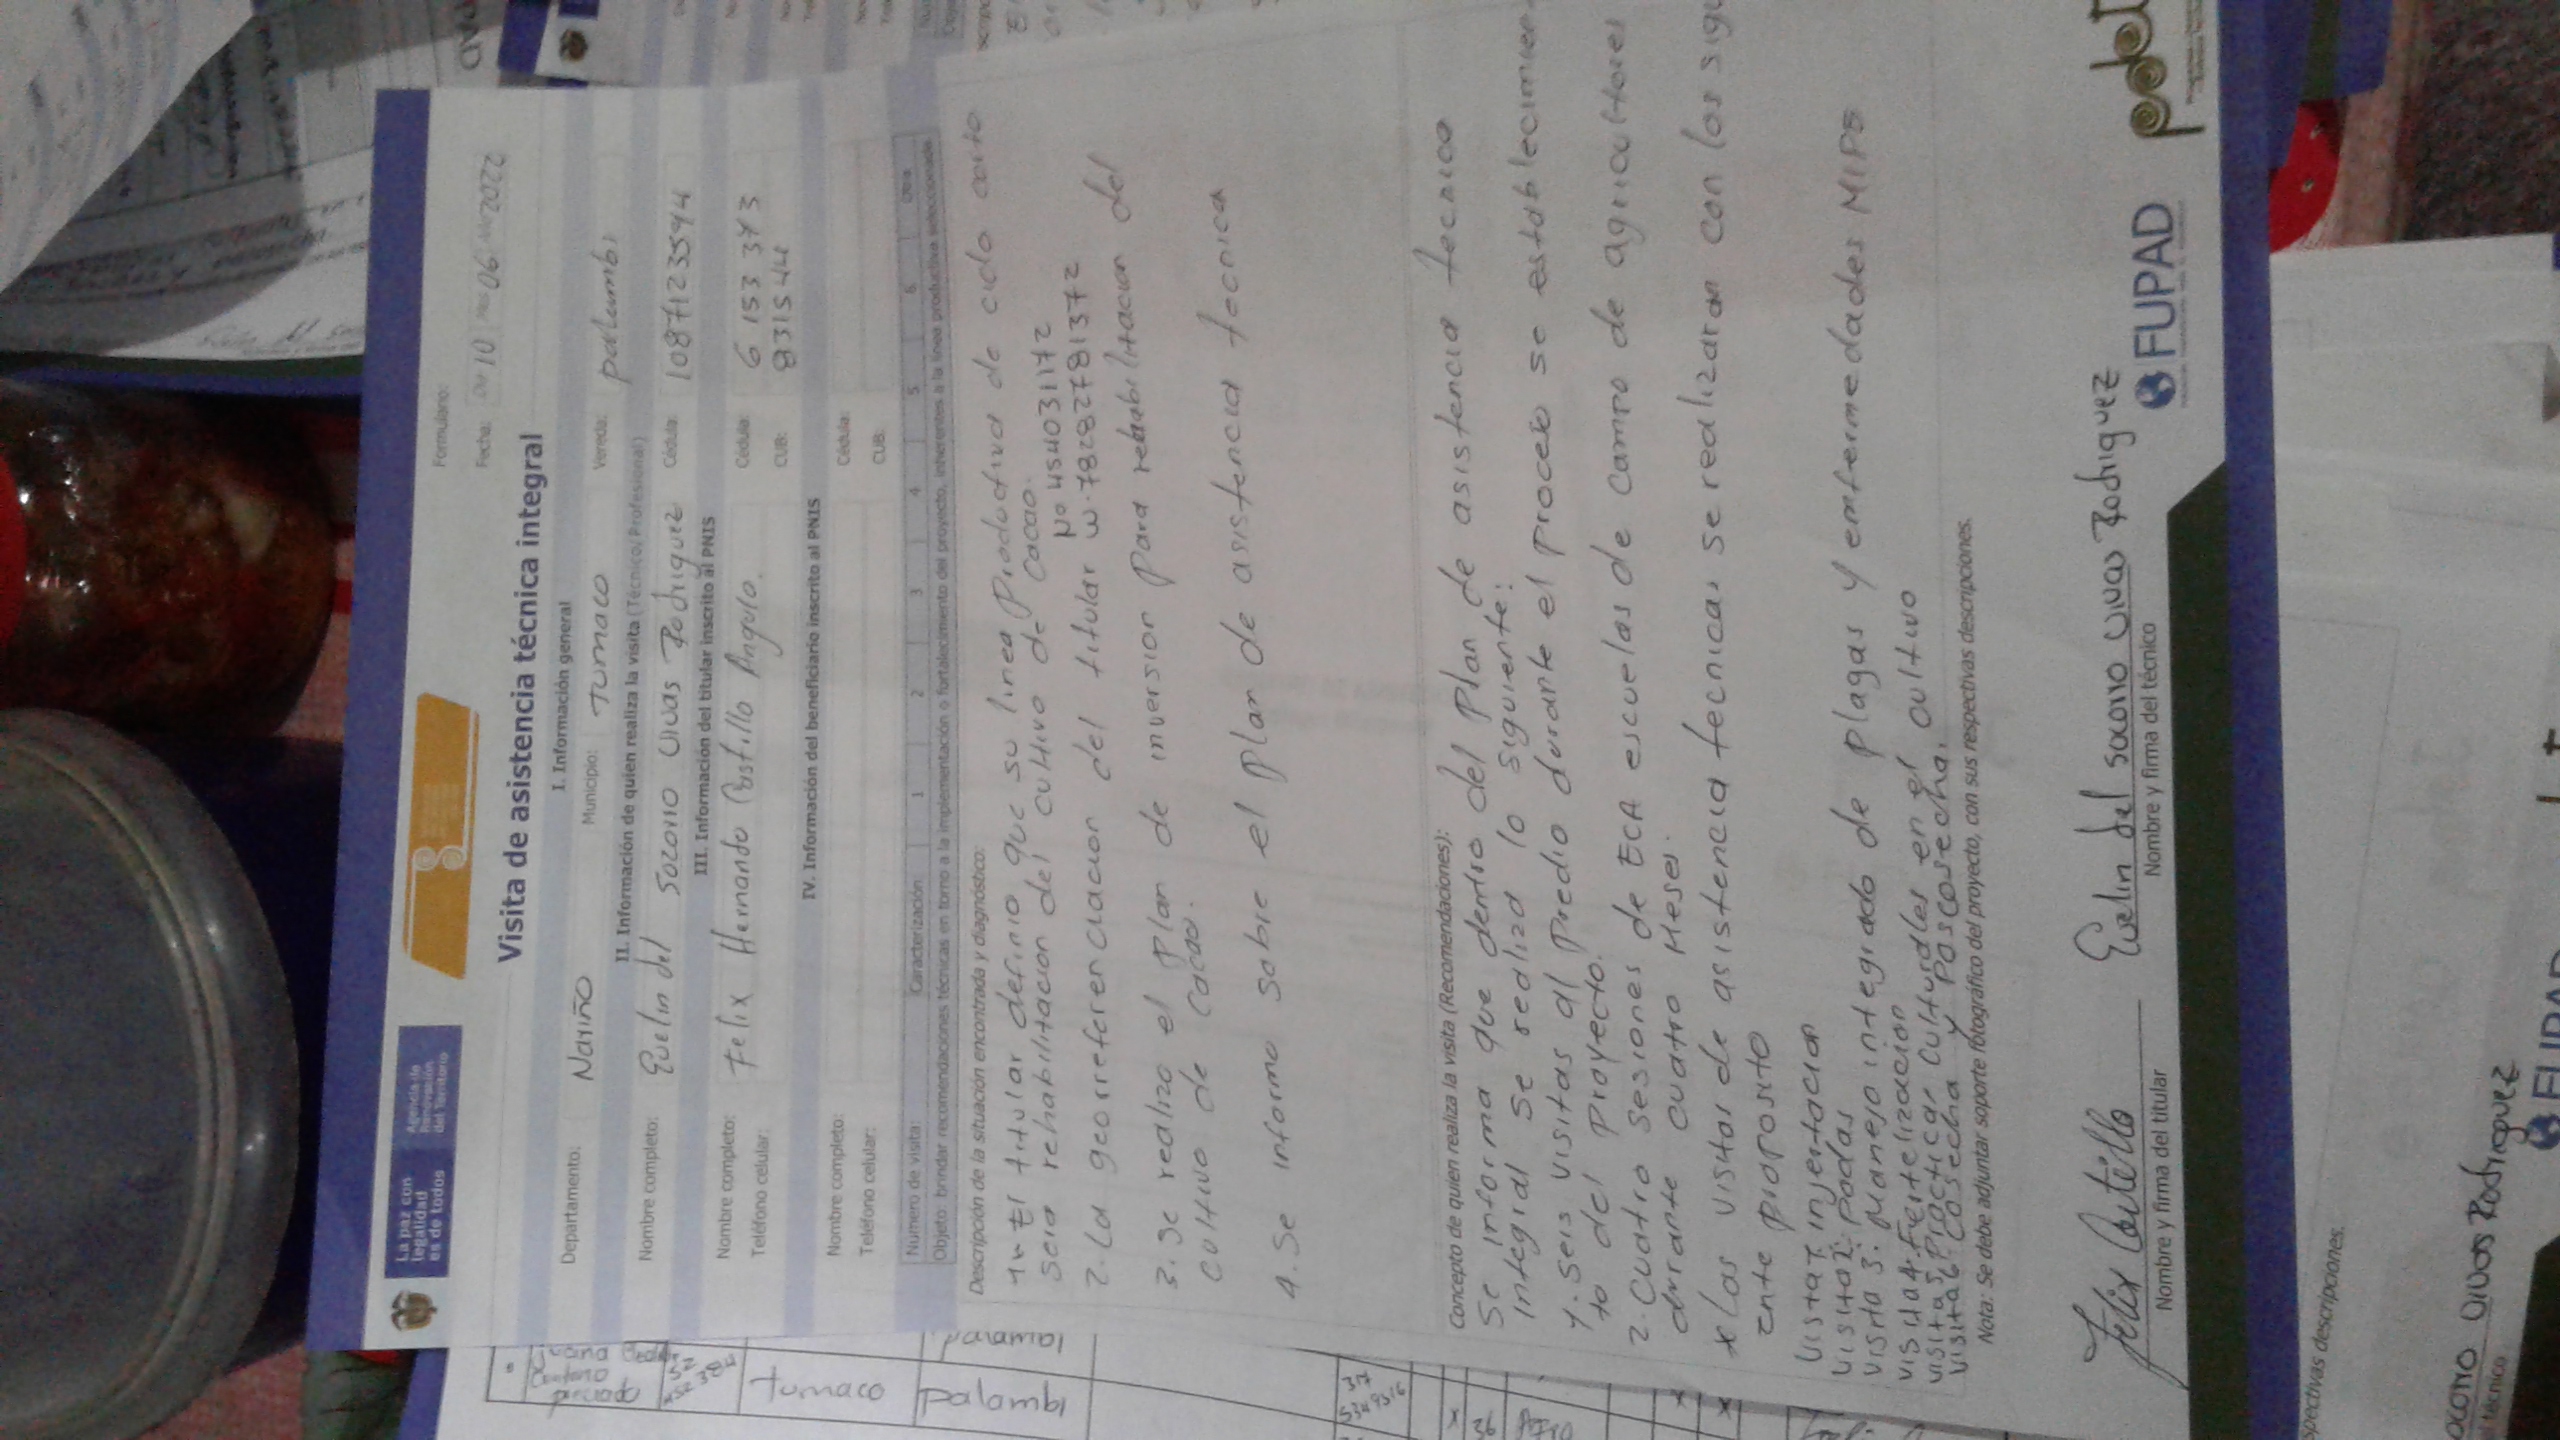 La paz con
legalidad
es de todos
Agencia de
Renovación
del Territorio
Formulario:
Fecha: Día 10 Mes 06 Año 2022
Visita de asistencia técnica integral
I. Información general
Departamento: Nariño Municipio: Tumaco Vereda: palambi
II. Información de quien realiza la visita (Técnico/Profesional)
Nombre completo: Evelin del Socorro Vivas Rodriguez Cédula: 1087123594
III. Información del titular inscrito al PNIS
Nombre completo: Felix Hernando Castillo Angulo. Cédula: 6 153 373
Teléfono celular: CUB: 8315 44
IV. Información del beneficiario inscrito al PNIS
Nombre completo: Cédula:
Teléfono celular: CUB:
Número de visita: Caracterización 1 2 3 4 5 6 Otra
Objeto: brindar recomendaciones técnicas en torno a la implementación o fortalecimiento del proyecto, inherentes a la línea productiva seleccionada
Descripción de la situación encontrada y diagnóstico:
1. El titular definio que su linea Productiva de ciclo corto
sera rehabilitacion del cultivo de cacao.
N° 454031172
2. La georreferenciacion del titular W-78282781372
3. Se realizo el Plan de inversion Para rehabilitacion del
cultivo de cacao.
4. Se informo sobre el Plan de asistencia tecnica
Concepto de quien realiza la visita (Recomendaciones):
Se informa que dentro del Plan de asistencia tecnica
integral se realiza lo siguiente:
1. Seis visitas al Predio durante el proceso se establecimien-
to del Proyecto.
2. Cuatro sesiones de ECA escuelas de campo de agricultores
durante cuatro Meses.
* Las visitas de asistencia tecnicas se realizaran con los sigui
ente proposito
visita 1. injertacion
visita 2. Podas
visita 3. Manejo integrado de plagas y enfermedades MIPE
visita 4. Fertelizacion
visita 5. Practicas Culturales en el cultivo
visita 6. Cosecha y Poscosecha.
Nota: Se debe adjuntar soporte fotográfico del proyecto, con sus respectivas descripciones.
Felix Castillo
Nombre y firma del titular
Evelin del socorro vivas Rodriguez
Nombre y firma del técnico
FUPAD
pdet
tumaco
palambi
palambi
spectivas descripciones.
ocorro vivas Rodriguez
técnico
FUPAD